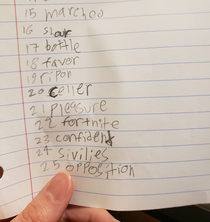 15 marcheo
16 slour
17 bottle
18 favor
19 ripon
20 celler
21 pleasure
22 fortnite
23 confident
24 sivilies
25 opposition